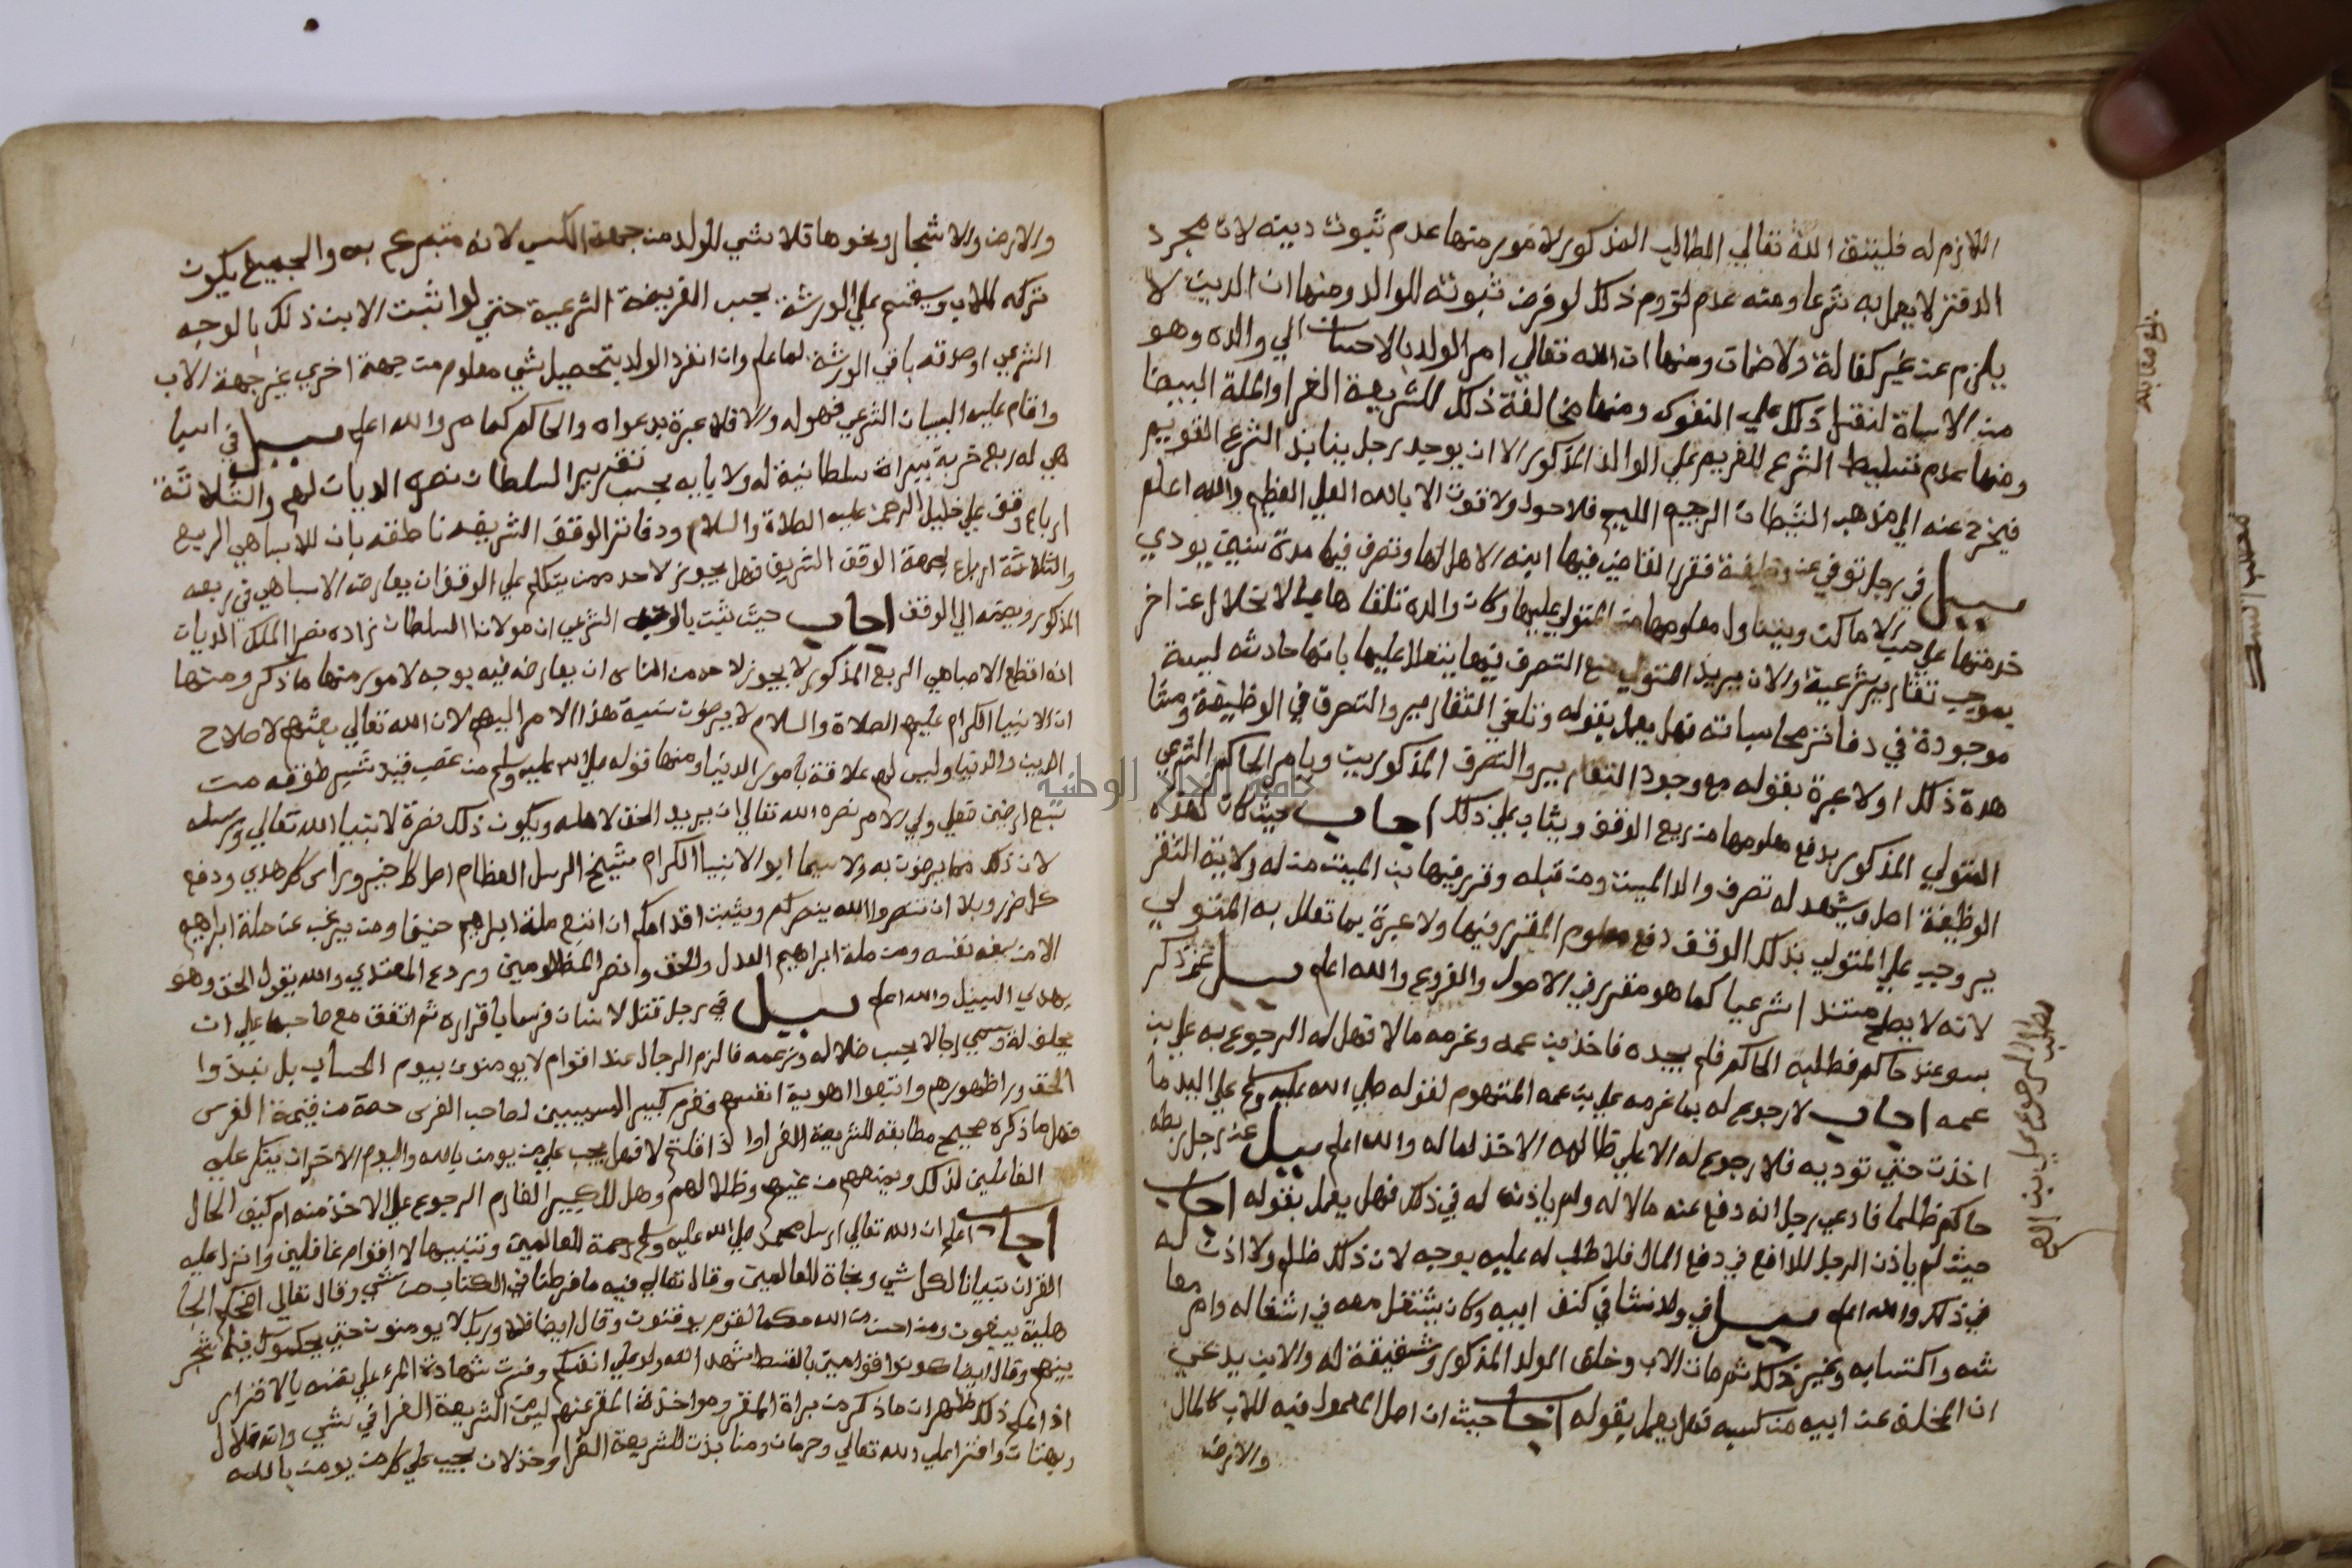 اللازم له فليتق الله تعالي المطالب المذكور لامور منها عدم ثبوت دينه لان مجرد
الدفتر لا يعمل به شرعا ومنه عدم لزوم ذلك لو فرض ثبوته للوالد ومنها ان الدين لا
يلزم عن غير كفالة ولا ضمان ومنها ان الله تعالي امر الولد بالاحسان الي والده وهو
من الاساة لنقل ذلك علي ومنها مخالفة ذلك للشريعة الغرا والملة البيضا
ومنها عدم تسليط الشرع للغريم علي الوالد المذكور الا ان يوجد رجل ينابذ الشرع القويم
فيخرج عنه الي مذهب الشيطان الرجيم فلا حول ولا قوة الا بالله العلي العظيم والله اعلم
سيل في رجل توفي عن وظيفة فقرر القاضي فيها ابنه الاهل لها وتصرف فيها مدة سنين يودي
خدمتها علي حسب الاماكن ويتناول معلومها من المتولي عليها وكان والده تلقاها عن اخر
بموجب تقارير شرعية والان يريد المتولي منع التصرف فيها يتعلل عليها بانها حادثه ليسة
موجودة في دفاتر محاسباته فهل يعمل بقوله وتلغي التقارير والتصرف في الوظيفة
هدة ذلك اولا عبرة بقوله مع وجود التقارير والتصرف المذكورين ويامر الحاكم الشرعي
المتولي المذكور بدفع معلومها من ريع الوقف ويثاب علي ذلك اجاب حيث كان لهذه
الوظيفة اصل ويشهد له تصرف والد الميت ومن قبله وقرر فيها بن الميت من له ولاية التقر
ير وجب علي المتولي بذلك الوقف دفع معلوم المقرر فيها ولا عبرة بما تعلل به المتولي
لانه لا يصلح مستندا شرعيا كما هو مقرر في الاصول والفروع والله اعلم سيل عمن ذكر
بسو عند حاكم فطلبه الحاكم فلم يجده فاخذ بن عمه وغرمه مالا فهل له الرجوع به علي بن
عمه اجاب لا رجوع له بما غرمه علي بن عمه المتهوم لقوله صلي الله عليه وسلم علي اليد ما
اخذت حتي توديه فلا رجوع له الا علي ظالمه الاخذ لماله والله اعلم سيل عن رجل ربطه
حاكم ظلما فادعي رجل انه دفع عنه مالا له ولم ياذنه له في ذلك فهل يعمل بقوله اجاب
حيث لم ياذن الرجل للدافع في دفع المال فلا طلب له عليه بوجه لان ذلك ظلم ولا اذن له
في ذلك والله اعلم سيل في ولد نشا في كنف ابيه وكان يشتغل معه في اشغاله وام معا
شه واكتسابه وغير ذلك ثم مات الاب وخلف الولد المذكور وشقيقة له والابن يدعي
ان المخلف عن ابيه من كسبه فهل يعمل بقوله اجاب حيث ان اصل المعمول فيه للاب كالمال
والارض
مطلب الرجوع علي بن العم
والارض والاشجار ونحوها فلا شي للولد من جهة الكسب لانه متبرع به والجميع يكون
تركه للاب ويقسم علي الورثة بحسب الفريضة الشرعية حتي لو اثبت الابن ذلك بالوجه
الشرعي او صدقه باقي الورثة لما علم وان انفرد الولد بتحصيل شي معلوم من جهة اخري غير جهة الاب
واقام عليه البيان الشرعي فهو له والا فلا عبرة بدعواه والحاكم كما مر والله اعلم سيل في اسبا
هي له ربع قرية ببراة سلطانية له ولابايه بحسب تقرير السلطان نصره الديان لهم والثلاثة
ارباع وقف علي خليل الرحمن عليه الصلاة والسلام ودفاتر الوقف الشريف ناطقه بان للاسباهي الربع
والثلاثة ارباع لجهة الوقف الشريف فهل يجوز لاحد ممن يتكلم علي الوقف ان يعارض الاسباهي في ربعه
المذكور ويضمه الي الوقف اجاب حيث ثبت بالوجه الشرعي ان مولانا السلطان زاده نصرا الملك الديان
انه اقطع الاصباهي الربع المذكور لا يجوز لاحد من الناس ان يعارضه فيه بوجه لامور منها ما ذكر ومنها
ان الانبيا الكرام عليهم الصلاة والسلام لا يرضون نسبة هذا الامر اليهم لان الله تعالي بعثهم لاصلاح
الدين والدنيا وليس لهم علاقة بامور الدنيا ومنها قوله صلي الله عليه وسلم من غصب قيد شبر طوقه من
سبع ارضين فعلي ولي الامر نصره الله تعالي ان يريد الحق لاهله ويكون ذلك نصرة لانبيا الله تعالي ورسله
لان ذلك مما يرضون به ولا سيما ابو الانبيا الكرام شيخ الرسل العظام اصل كل خير وراس كل هدي ودفع
كل ضرر وبلا ان تنصروا الله ينصركم ويثبت اقدامكم ان اتبع ملة ابراهيم حنيفا ومن يرغب عن ملة ابراهيم
الا من سفه نفسه ومن ملة ابراهيم العدل والحق وانصر المظلومين وردع المعتدي والله يقول الحق وهو
يهدي السبيل والله اعلم سيل في رجل قتل لانسان فرسا باقراره ثم اتفق مع صاحبها علي ان
يحلف له وسمي رجالا بحسب ضلاله وزعمه فالزم الرجال عند اقوام لا يومنون بيوم الحساب بل نبذوا
الحق ورا ظهورهم واتبعوا اهوية انفسهم فغرم كبير المسببين لصاحب الفرس حصة من قيمة الفرس
فهل ما ذكره صحيح مطابقه للشريعة الغرا واذا قلتم لا فهل يجب علي من يومن بالله واليوم الاخر ان ينكر علي
الفاعلين لذلك ويمنعهم من غيهم وظلالهم وهل للكبير الغارم الرجوع علي الاخذ منه ام كيف الحال
اجاب اعلم ان الله تعالي ارسل محمد صلي الله عليه وسلم رحمة للعالمين وتنبيها لاقوام غافلين وانزل عليه
القران تبيانا لكل شي ونجاة للعالمين وقال تعالي فيه ما فرطنا في الكتاب من شي وقال تعالي افحكم الجا
هلية يبغون ومن احسن من الله حكما لقوم يوقنون وقال ايضا فلا وربك لا يومنون حتي يحكموك فيما شجر
بينهم وقال ايضا كونوا قوامين بالقسط شهدا لله ولو علي انفسكم وفسرت شهادة المرء علي نفسه بالاقرار
اذا علم ذلك ظهر ان ما ذكر من براة المقر ومواخذة المقر عنهم ليس من الشريعة الغرا في شي وانه ضلال
وبهتان وافترا علي الله تعالي وحرمان ومنابذت للشريعة الغرا وخذلان يجب علي كل من يومن بالله
جامعة النجاح الوطنية